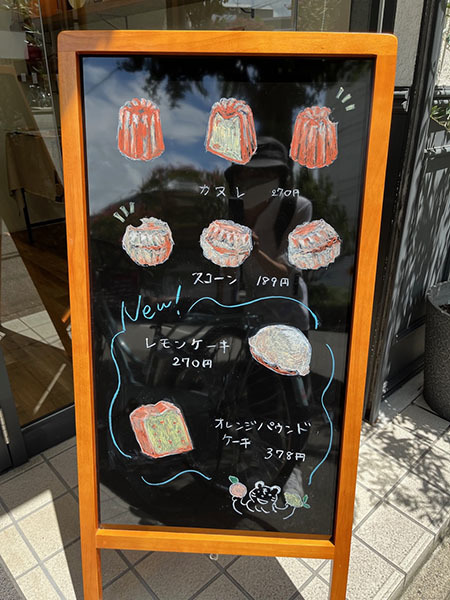 カヌレ 270円
スコーン 189円
New!
レモンケーキ
270円
オレンジパウンド
ケーキ
378円